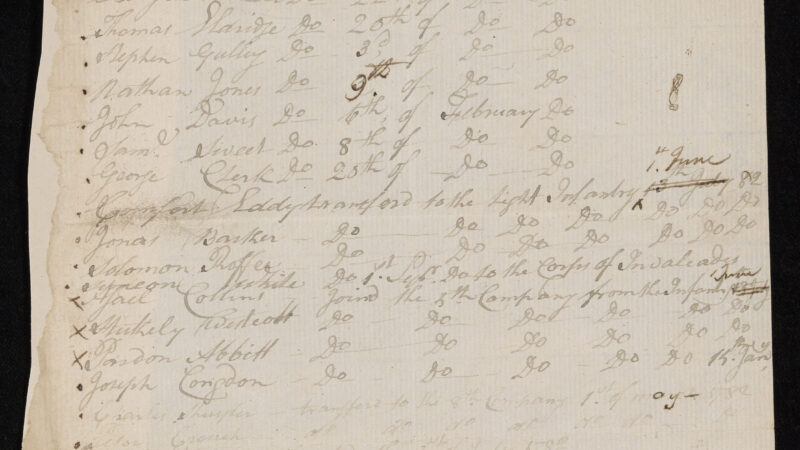 Thomas Eldridge Do 20th of Do Do
Stephen Gulley Do 3d of Do Do
Nathan Jones Do 9th of Do Do
8
John Davis Do 6th of February Do
Saml Sweet Do 8th of Do Do
George Clerk Do 25th of Do Do
1st June
Comfort Eddy transferd to the light Infantry 82
Jonas Barker Do Do Do Do Do Do Do
Solomon Do Do Do Do Do Do Do
Simeon Do 1st Do to the Corps of Invaleads
June
Collins Joind the 8th Company from the Infantry
Stukely Do Do Do Do Do Do
Pardon Abbitt Do Do Do Do Do Do
Joseph Congdon Do Do Do Do Do 15th Jany
Charles transferd to the 8th Company 1st of may 1782
do do do do do